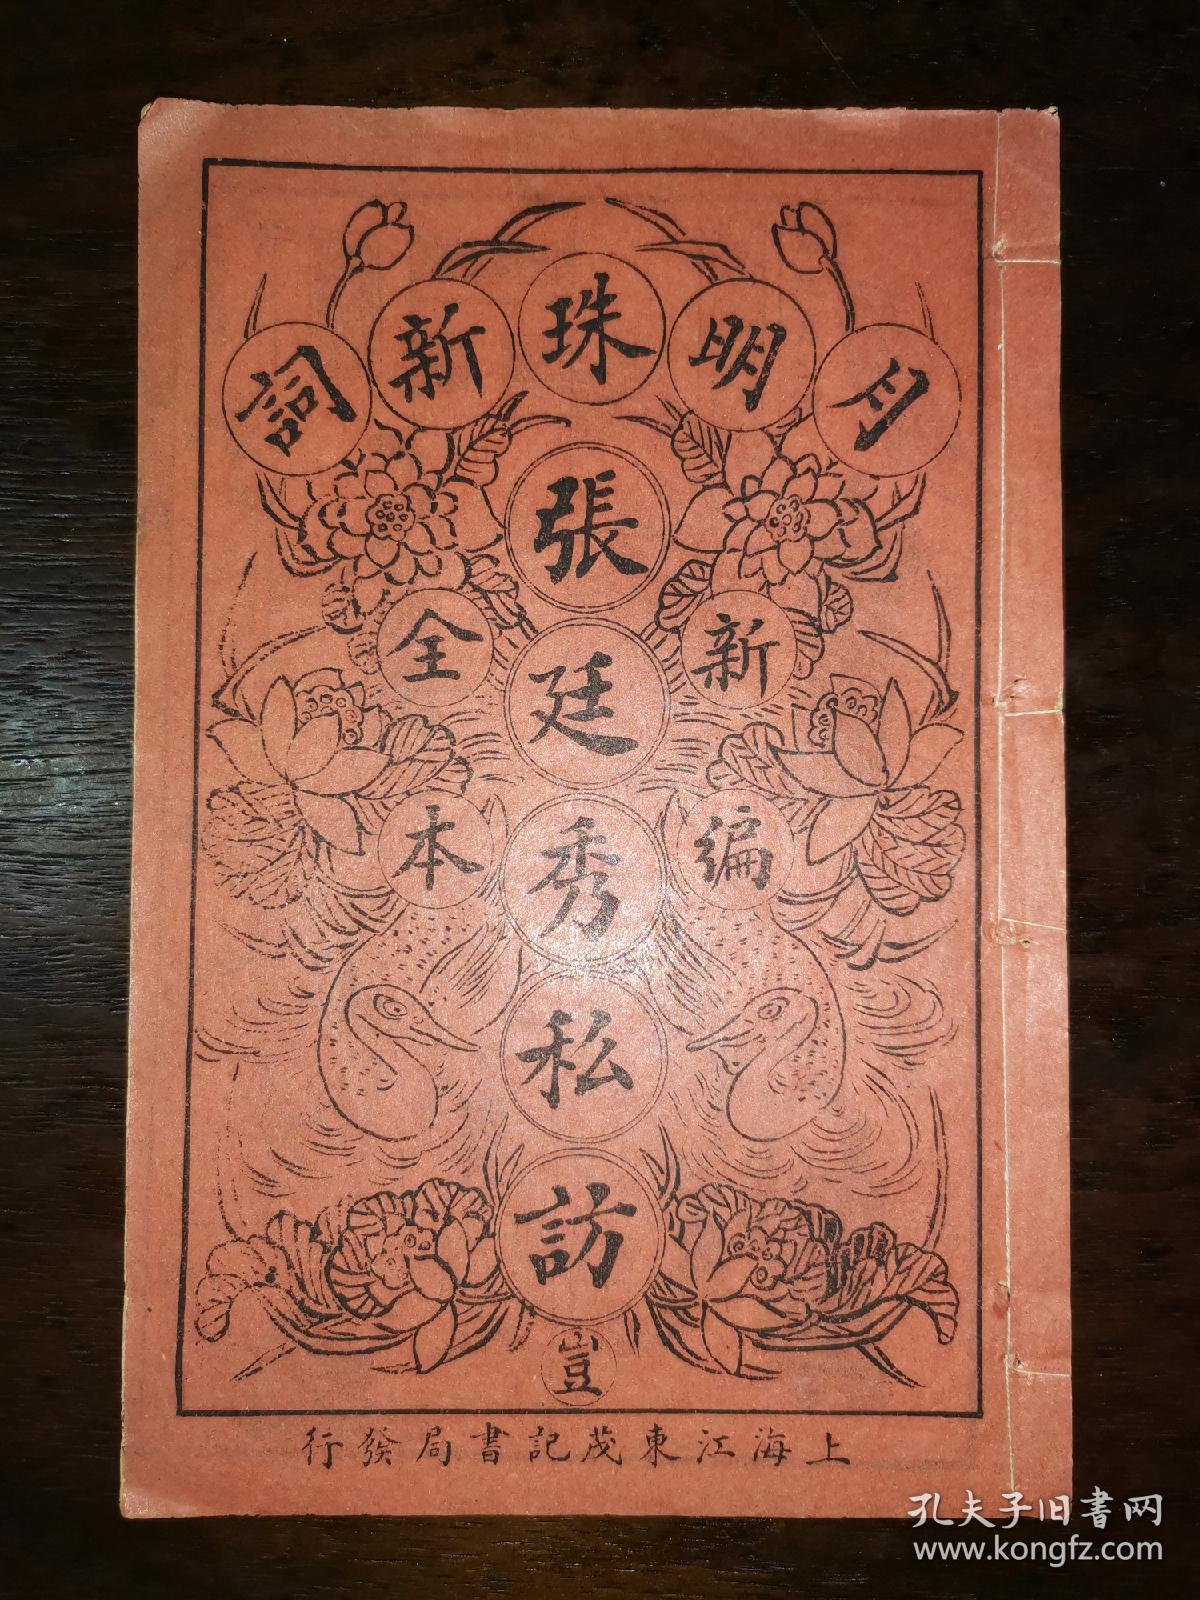 月明珠新詞
新編
張廷秀私訪
全本
豈
上海江東茂記書局發行
孔夫子旧書网
www.kongfz.com